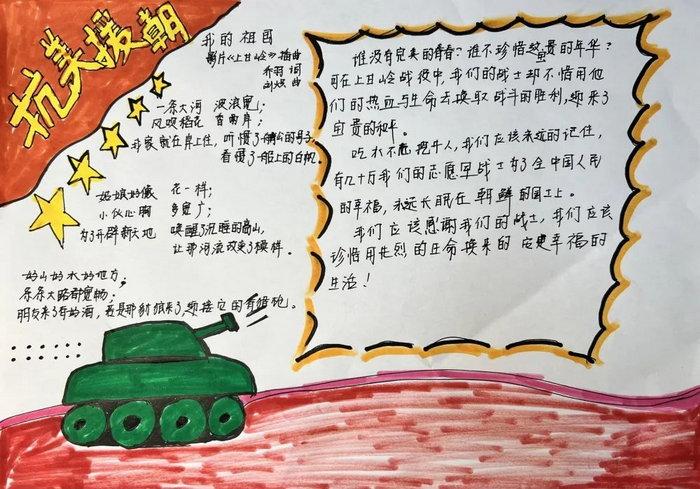 抗美援朝
我的祖国
影片《上甘岭》插曲
乔羽 词
刘炽 曲
一条大河 波浪宽；
风吹稻花 香两岸；
我家就在岸上住，听惯了艄公的号子
看惯了船上的白帆
姑娘好像 花一样；
小伙心胸 多宽广；
为了开辟新天地 唤醒了沉睡的高山，
让那河流改变了模样。
好山好水好地方；
条条大路都宽畅；
朋友来了有好酒，若是那豺狼来了，迎接它的有猎枪
谁没有完美的青春？谁不珍惜宝贵的年华？
可在上甘岭战役中，我们的战士却不惜用他
们的热血与生命去换取战斗的胜利，迎来了
宝贵的和平。
吃水不忘挖井人，我们应该永远的记住，
有几十万我们的志愿军战士为了全中国人民
的幸福，永远长眠在朝鲜的国土上。
我们应该感谢我们的战士，我们应该
珍惜用先烈的生命换来的安定幸福的
生活！